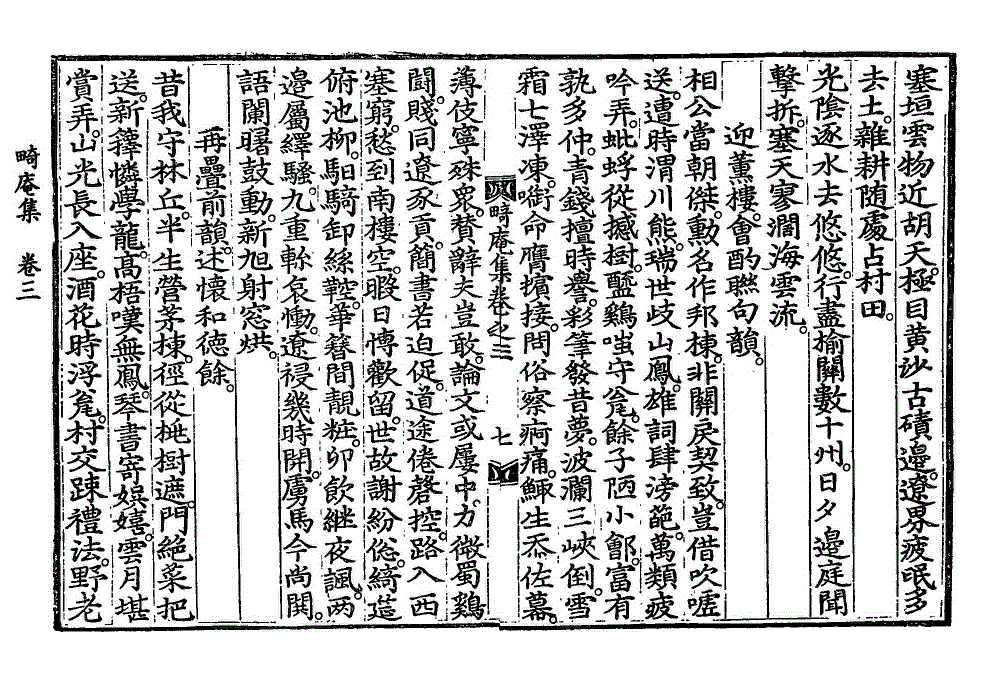 塞垣雲物近胡天。極目黄沙古磧邊。遼界疲氓多
去土。雜耕随處占村田。
光陰逐水去悠悠。行盡揄關數十州。日夕邊庭聞
擊拆。塞天寥濶海雲流。
迎薰樓。會酌聮句韻。
相公當朝傑。勳名作邦棟。非關戾契致。豈借吹嘘
送。遭時渭川熊。瑞世歧山鳳。雄詞肆滂葩。萬類疲
吟弄。蚍蜉從撼樹。醯鷄嗤守瓮。餘子陋小鄶。富有
孰多仲。青錢擅時譽。彩筆發昔夢。波瀾三峽倒。雪
霜七澤凍。啣命膺擯接。問俗察痾痛。鯫生忝佐幕。
畸庵集卷之三 七
薄伎寧殊衆。賛辭夫豈敢。論文或屢中。力微蜀鷄
鬪。賤同遼豕貢。蕳書若迫促。道途倦磬控。路入西
塞窮。愁到南樓空。暇日慱歡留。世故謝紛倊。綺莚
俯池柳。馹騎卸絲鞚。華簪間靚粧。卯飮継夜諷。两
邊屬繹騷。九重軫哀慟。遼祲幾時開。虜馬今尚閧。
語闌曙鼓動。新旭射窓烘。
再疊前韻。述懷和德餘。
昔我守林丘。半生營茅棟。徑從桃樹遮。門絶菜把
送。新籜憐學龍。高梧嘆無鳳。琴書寄娯嬉。雲月堪
賞弄。山光長入座。酒花時浮瓮。村交踈禮法。野老
畸庵集 卷三